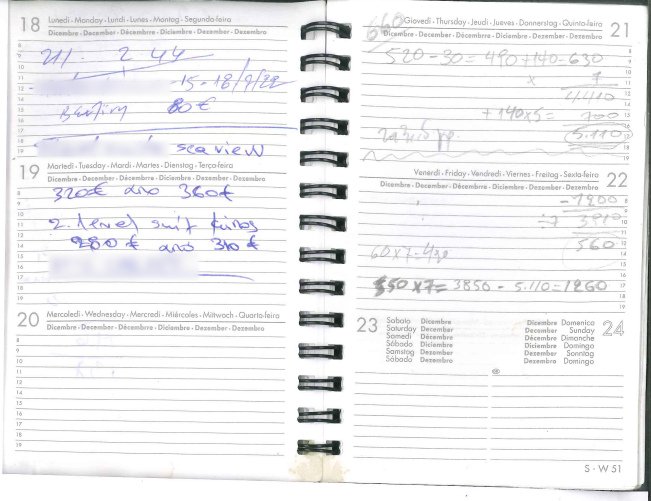 18 Lunedì - Monday - Lundi - Lunes - Montag - Segunda-feira
Dicembre - December - Décembre - Diciembre - Dezember - Dezembro
2 44
-15-18/9/22
80€
sea view
19 Martedì - Tuesday - Mardi - Martes - Dienstag - Terça-feira
Dicembre - December - Décembre - Diciembre - Dezember - Dezembro
320€ απο 360€
2.
280€ απο 310€
20 Mercoledì - Wednesday - Mercredi - Miércoles - Mittwoch - Quarta-feira
Dicembre - December - Décembre - Diciembre - Dezember - Dezembro
660
Giovedì - Thursday - Jeudi - Jueves - Donnerstag - Quinta-feira 21
Dicembre - December - Décembre - Diciembre - Dezember - Dezembro
520-30=490+140=630
x 7
4410
+140x5= 700
5.110
Venerdì - Friday - Vendredi - Viernes - Freitag - Sexta-feira 22
Dicembre - December - Décembre - Diciembre - Dezember - Dezembro
÷7 3910
560
550x7=3850 - 5.110=1260
23 Sabato Dicembre
Saturday December
Samedi Décembre
Sábado Diciembre
Samstag Dezember
Sábado Dezembro
Dicembre Domenica 24
December Sunday
Décembre Dimanche
Diciembre Domingo
Dezember Sonntag
Dezembro Domingo
S - W 51